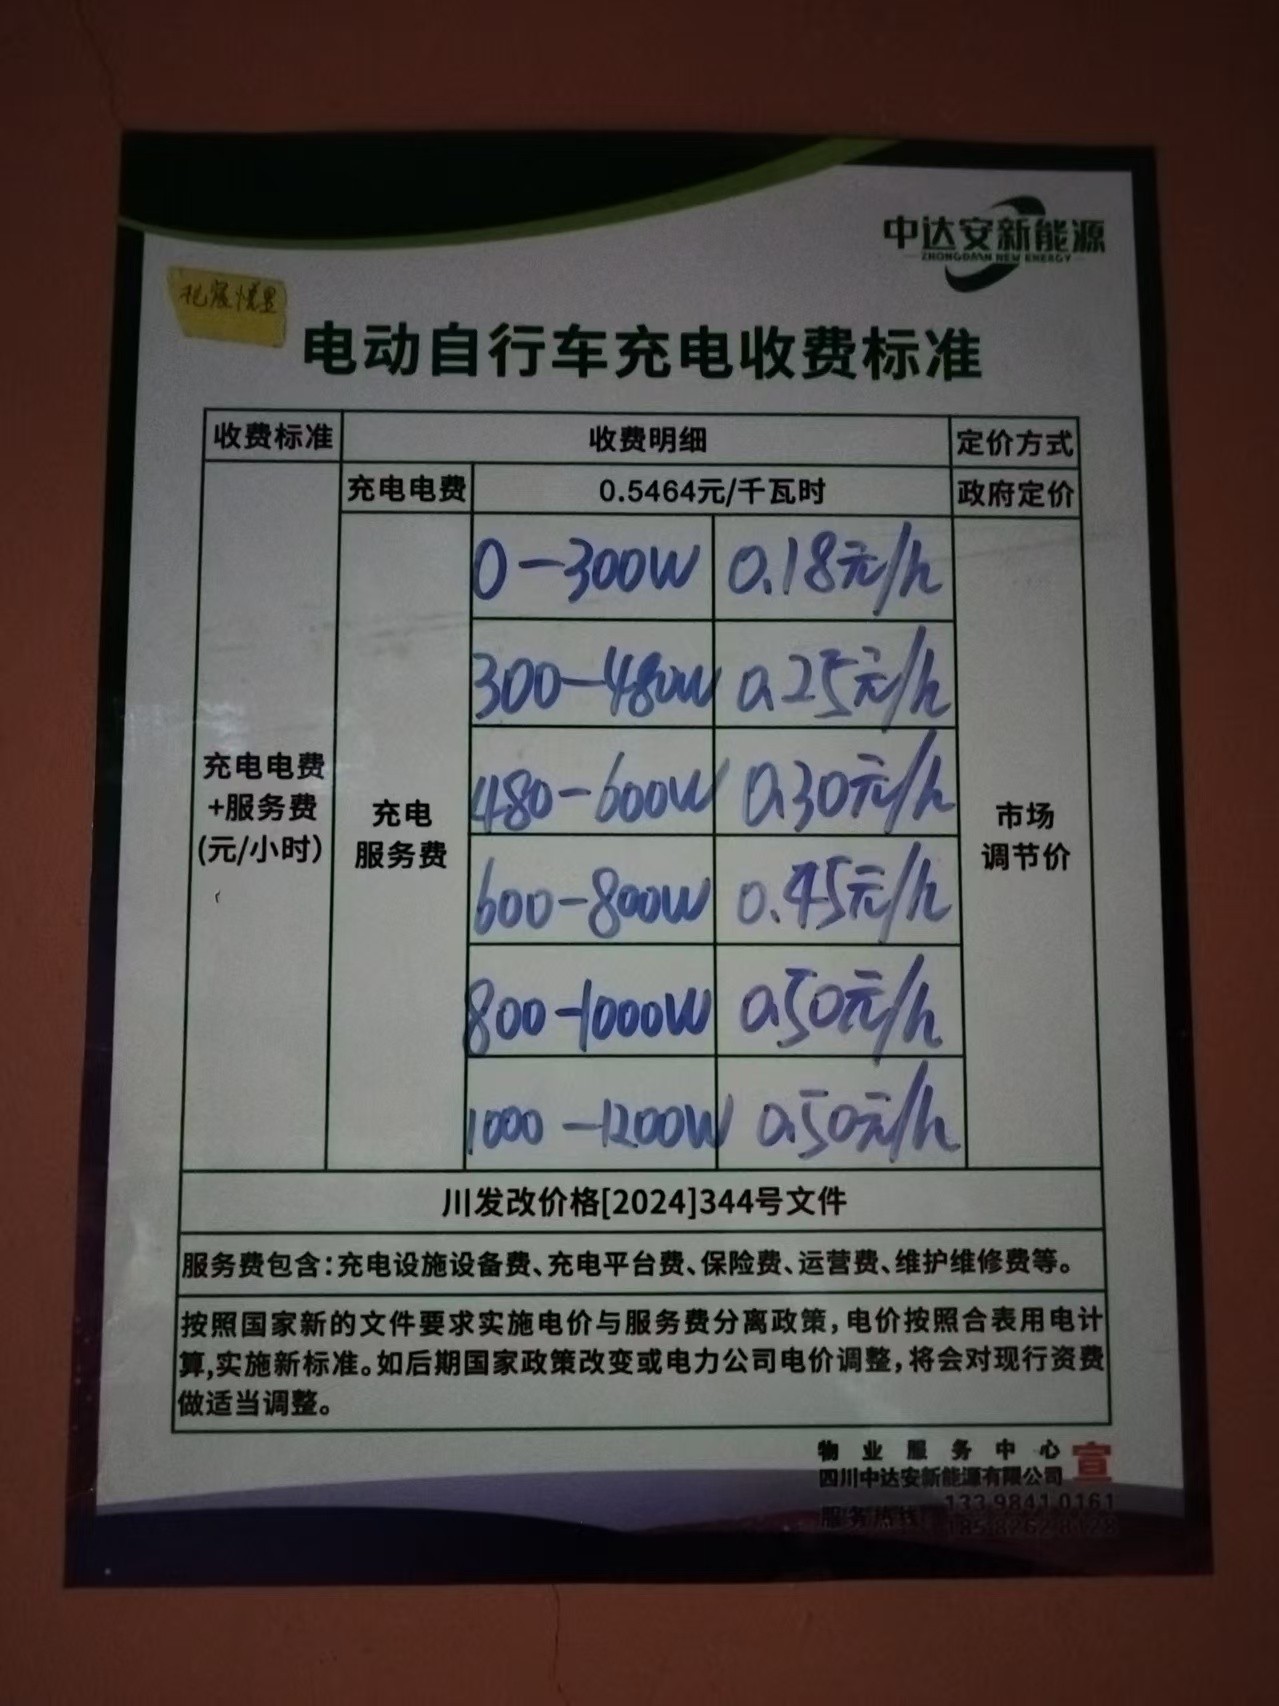 中达安新能源
ZHONGDAAN NEW ENERGY
电动自行车充电收费标准
收费标准 收费明细 定价方式
充电电费 0.5464元/千瓦时 政府定价
充电电费
+服务费
(元/小时)
充电
服务费
0-300W 0.18元/h
300-480W 0.25元/h
480-600W 0.30元/h
600-800W 0.45元/h
800-1000W 0.50元/h
1000-1200W 0.50元/h
市场
调节价
川发改价格[2024]344号文件
服务费包含:充电设施设备费、充电平台费、保险费、运营费、维护维修费等。
按照国家新的文件要求实施电价与服务费分离政策,电价按照合表用电计
算,实施新标准。如后期国家政策改变或电力公司电价调整,将会对现行资费
做适当调整。
物业服务中心
四川中达安新能源有限公司
宣
服务热线
133 9841 0161